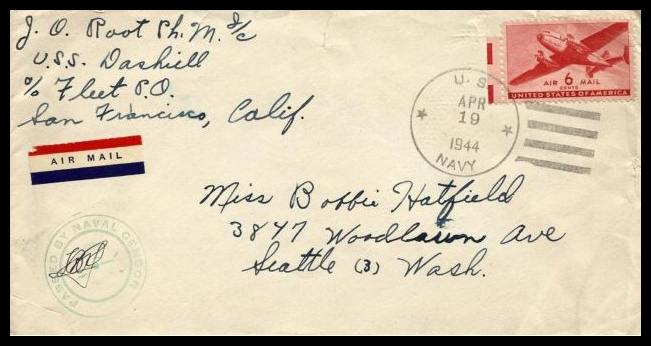 J. O. Root Ph. M. 3/c
U.S.S. Dashiell
℅ Fleet P.O.
San Francisco, Calif.
AIR MAIL
6
CENTS
AIR MAIL
UNITED STATES OF AMERICA
U. S.
APR
19
1944
NAVY
Miss Bobbie Hatfield
3847 Woodlawn Ave
Seattle (3) Wash.
PASSED BY NAVAL CENSOR